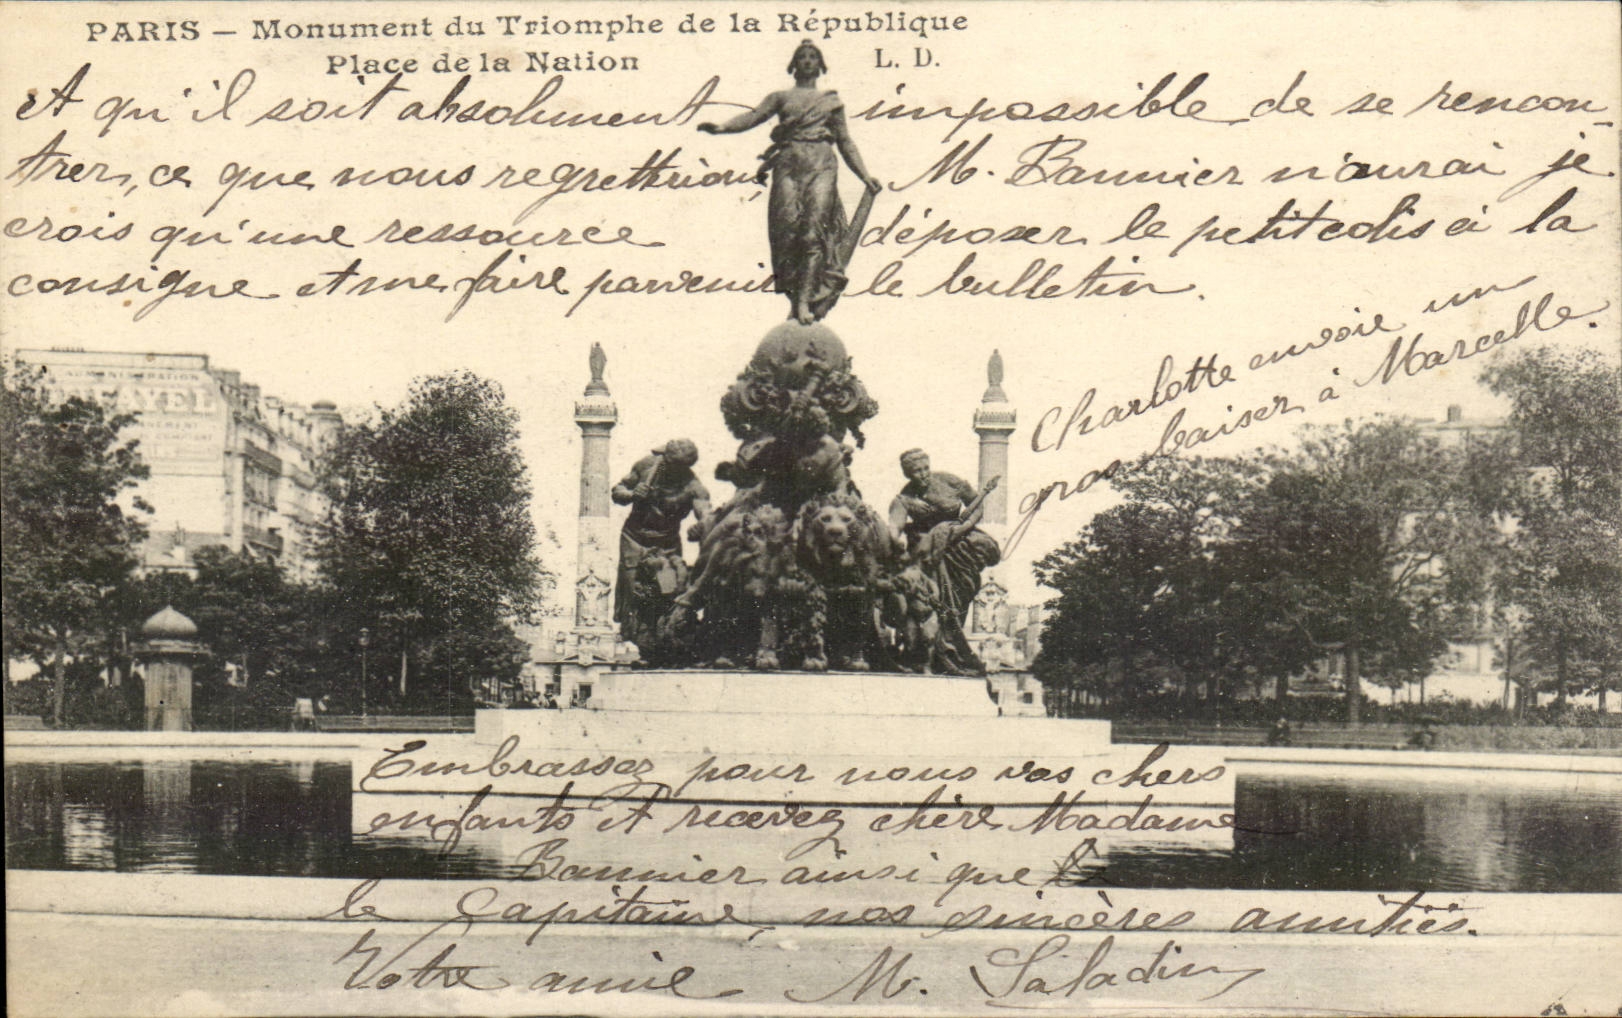 PARIS — Monument du Triomphe de la République
Place de la Nation L. D.
et qu'il soit absolument impossible de se rencon-
trer, ce que nous regretterions, M. Bannier n'aurai je
crois qu'une ressource déposer le petit colis à la
consigne et me faire parvenir le bulletin.
Charlotte envoie un
gros baiser à Marcelle.
FAYEL
Embrassez pour nous vos chers
enfants et recevez chère Madame
Bannier ainsi que
le Capitaine, nos sincères amitiés.
Votre amie M. Saladin